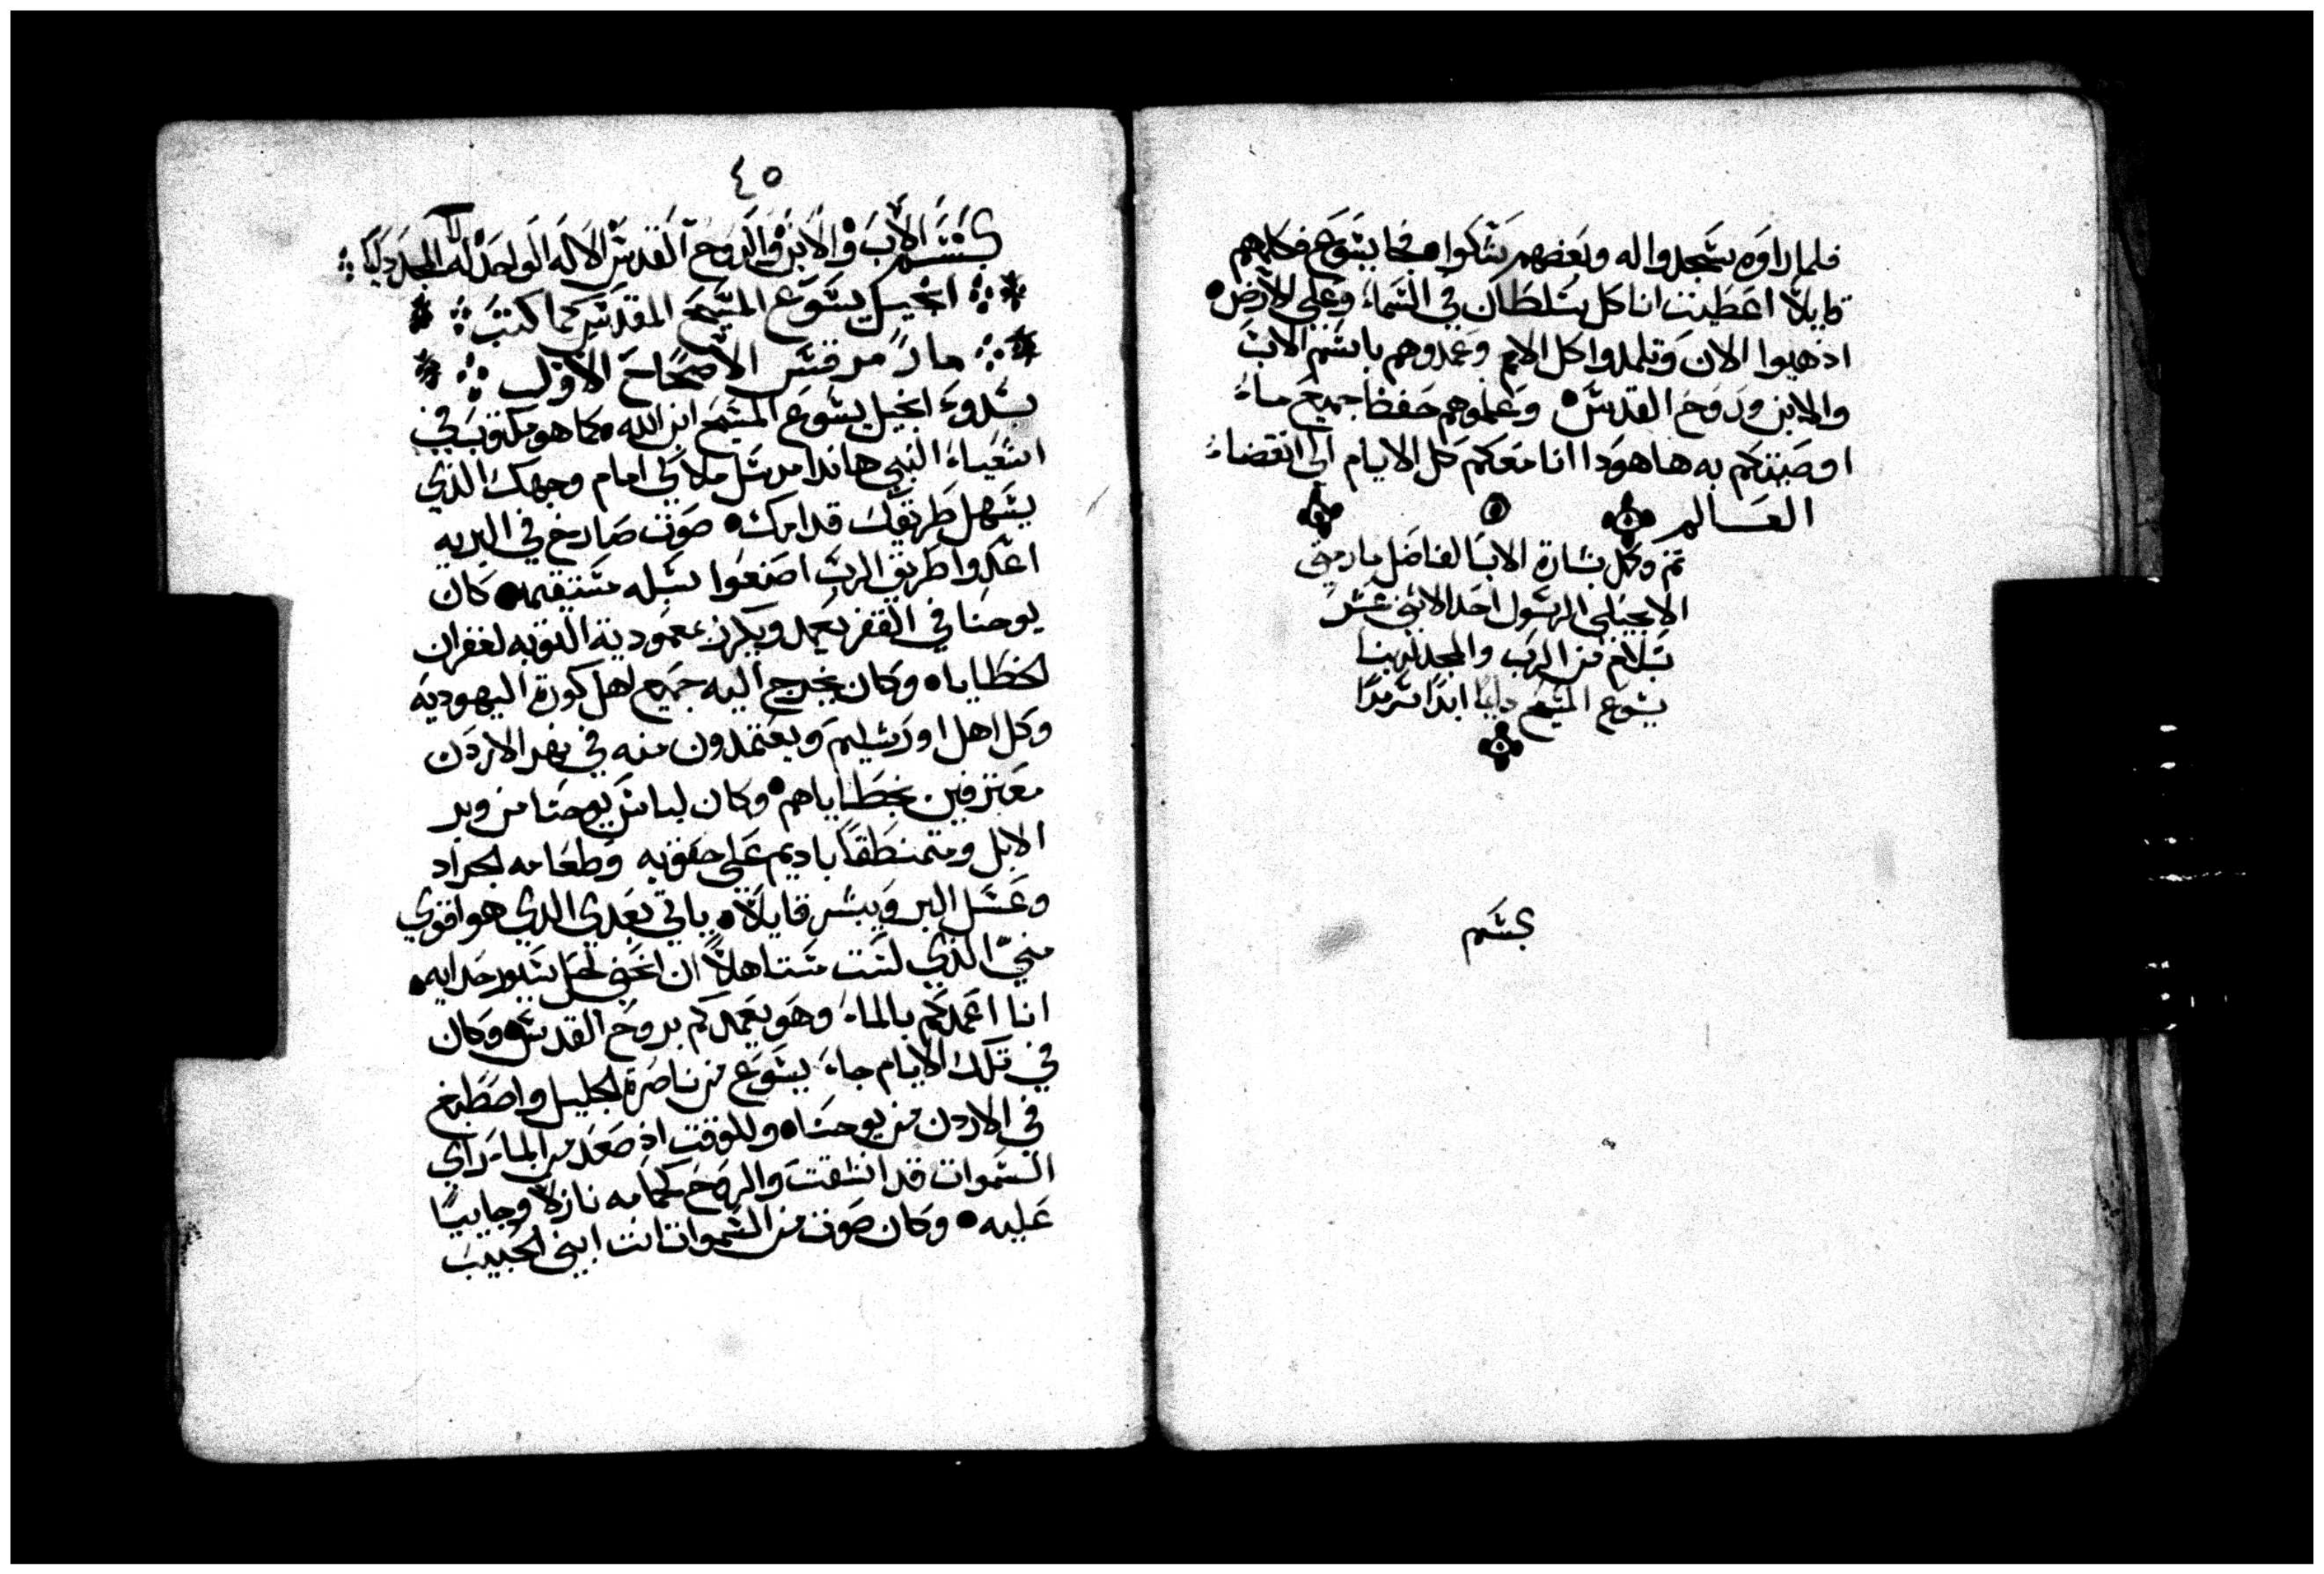 فلما راوه سجدوا له وبعضهم شكوا فجا يسوع فكلمهم
قايلاً اعطيت انا كل سلطان في السماء وعلى الارض
اذهبوا الان وتلمدوا كل الامم وعمدوهم باسم الاب
والابن وروح القدس وعلموهم حفظ جميع ما
اوصيتكم به هاهودا انا معكم كل الايام الى انقضاء
العالم
تم وكمل بشارة الاب الفاضل مار متى
الانجيلي الرسول احد الاثنى عشر
بسلام من الرب والمجد لربنا
يسوع المسيح دايما ابدا سرمدا
بسم
٤٥
بسم الاب والابن والروح القدس الاله الواحد له المجد دايما
انجيل يسوع المسيح المقدس كما كتب
مار مرقس الاصحاح الاول
بدوء انجيل يسوع المسيح ابن الله كما هو مكتوب في
اشعياء النبي هاندا مرسل ملاكي امام وجهك الذي
يسهل طريقك قدامك صوت صارخ في البريه
اعدوا طريق الرب اصنعوا سبله مستقيمه كان
يوحنا في القفر يعمد ويكرز بمعمودية التوبه لغفران
الخطايا وكان يخرج اليه جميع اهل كورة اليهوديه
وكل اهل اورشليم ويعتمدون منه في نهر الاردن
معترفين بخطاياهم وكان لباس يوحنا من وبر
الابل ومتمنطقاً باديم على حقويه وطعامه الجراد
وعسل البر ويبشر قايلاً ياتي بعدي الدي هو اقوي
مني الذي لست مستاهلاً ان انحني لحل سيور حدايه
انا اعمدكم بالماء وهو يعمدكم بروح القدس وكان
في تلك الايام جاء يسوع من ناصرة الجليل واصطبغ
في الاردن من يوحنا وللوقت اذ صعد من الماء راي
السموات قد انشقت والروح كحمامه نازلاً وجاييا
عليه وكان صوت من السموات انت ابني الحبيب